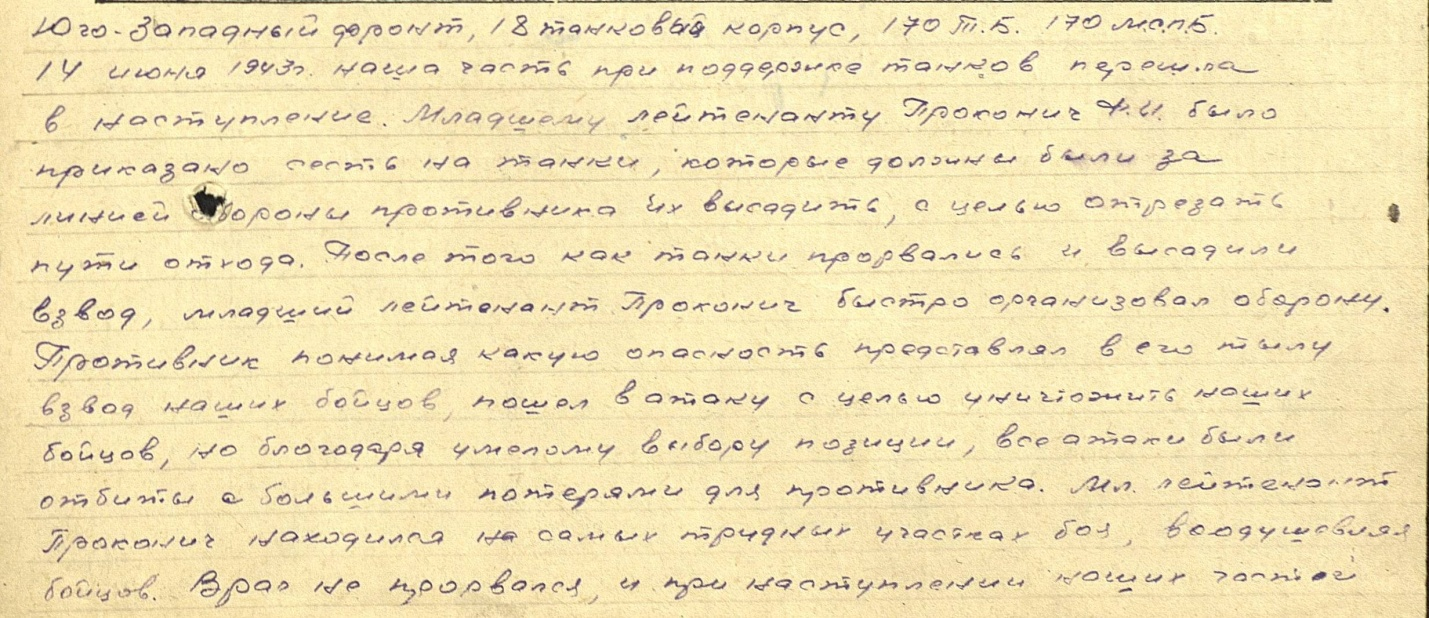 Юго-Западный фронт, 18 танковый корпус, 170 Т.Б. 170 м.с.п.Б.
14 июня 1943г. наша часть при поддержке танков перешла
в наступление. Младшему лейтенанту Проконич Ф.И. было
приказано сесть на танки, которые должны были за
линией обороны противника их высадить, с целью отрезать
пути отхода. После того как танки прорвались и высадили
взвод, младший лейтенант Проконич быстро организовал оборону.
Противник понимая какую опасность представлял в его тылу
взвод наших бойцов, пошел в атаку с целью уничтожить наших
бойцов, но благодаря умелому выбору позиции, все атаки были
отбиты с большими потерями для противника. Мл. лейтенант
Проконич находился на самых тридных участках боя, воодушевляя
бойцов. Враг не прорвался, и при наступлении наших частей